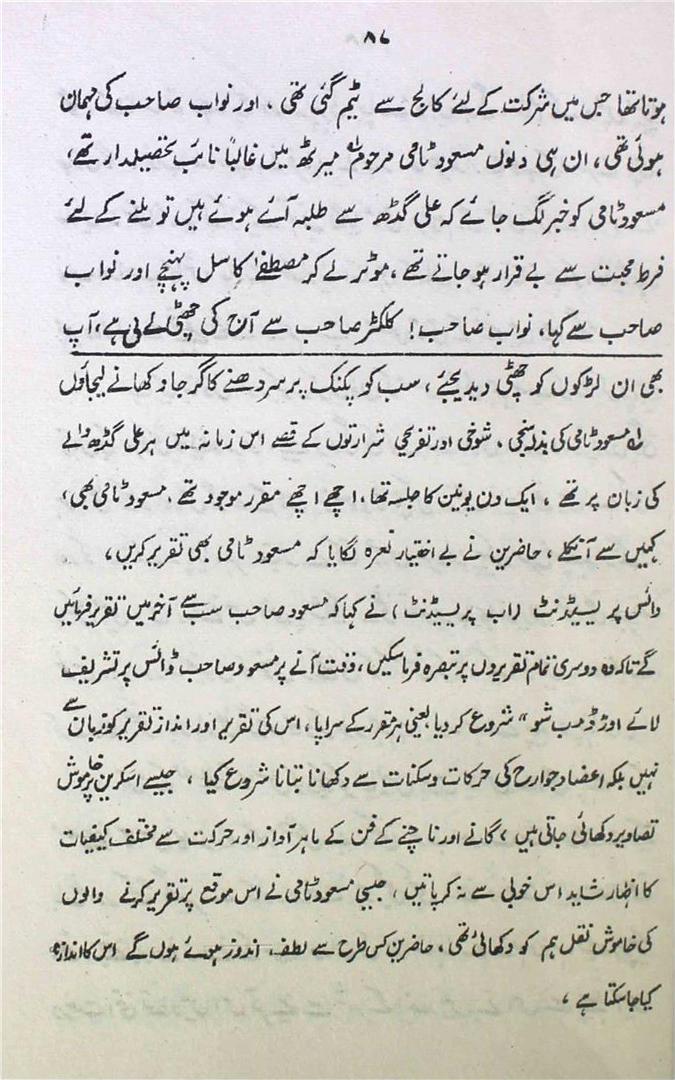 ۸۷
ہوتا تھا جس میں شرکت کے لئے کالج سے ٹیم گئی تھی ، اور نواب صاحب کی مہمان
ہوئی تھی ، ان ہی دنوں مسعود ٹامی مرحوم لہ میرٹھ میں غالباً نائب تحصیلدار تھے ،
مسعود ٹامی کو خبر لگ جائے کہ علی گڈھ سے طلبہ آئے ہوئے ہیں تو ملنے کے لئے
فرط محبت سے بے قرار ہو جاتے تھے ، موٹر لے کر مصطفےٰ کاسل پہنچے اور نواب
صاحب سے کہا ، نواب صاحب ! کلکٹر صاحب سے آج کی چھٹی لے لی ہے ، آپ
بھی ان لڑکوں کو چھٹی دیدیجئے ، سب کو پکنک پر سردھنے کا گرجا دکھانے لیجاؤں
لہ مسعود ٹامی کی بذلہ سنجی ، شوخی اور تفریحی شرارتوں کے قصے اس زمانہ میں ہر علی گڈھ والے
کی زبان پر تھے ، ایک دن یونین کا جلسہ تھا ، اچھے اچھے مقرر موجود تھے ، مسعود ٹامی بھی ،
کہیں سے آنکلے ، حاضرین نے بے اختیار نعرہ لگایا کہ مسعود ٹامی بھی تقریر کریں ،
وائس پریسیڈنٹ ( اب پریسیڈنٹ ) نے کہا کہ مسعود صاحب سب سے آخر میں تقریر فرمائیں
گے تاکہ وہ دوسری تمام تقریروں پر تبصرہ فرما سکیں ، وقت آنے پر مسعود صاحب ڈائس پر تشریف
لائے اور ڈمب شو " شروع کر دیا یعنی ہر مقرر کے سراپا ، اس کی تقریر اور انداز تقریر کو زبان سے
نہیں بلکہ اعضا و جوارح کی حرکات و سکنات سے دکھانا بتانا شروع کیا ، جیسے اسکرین پر خاموش
تصاویر دکھائی جاتی ہیں ، گانے اور ناچنے کے فن کے ماہر آواز اور حرکت سے مختلف کیفیات
کا اظہار شاید اس خوبی سے نہ کر پاتیں ، جیسی مسعود ٹامی نے اس موقع پر تقریر کرنے والوں
کی خاموش نقل ہم کو دکھائی تھی ، حاضرین کس طرح سے لطف اندوز ہوئے ہوں گے اس کا اندازہ
کیا جا سکتا ہے ،